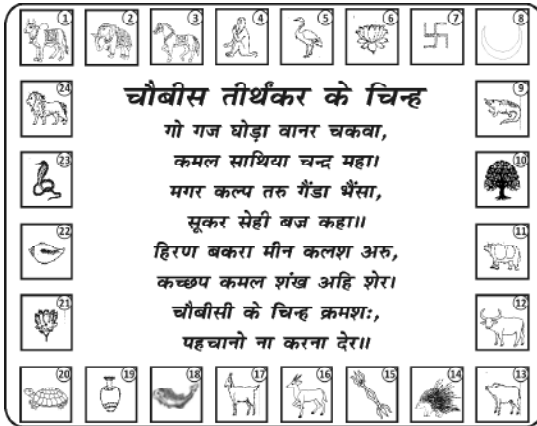 1 2 3 4 5 6 7 8
24 9
चौबीस तीर्थंकर के चिन्ह
गो गज घोड़ा वानर चकवा,
कमल साथिया चन्द्र महा।
23 10
मगर कल्प तरु गैंडा भैंसा,
सूकर सेही बज्र कहा॥
22 11
हिरण बकरा मीन कलश अरु,
कच्छप कमल शंख अहि शेर।
21 12
चौबीसी के चिन्ह क्रमशः,
पहचानो ना करना देर॥
20 19 18 17 16 15 14 13